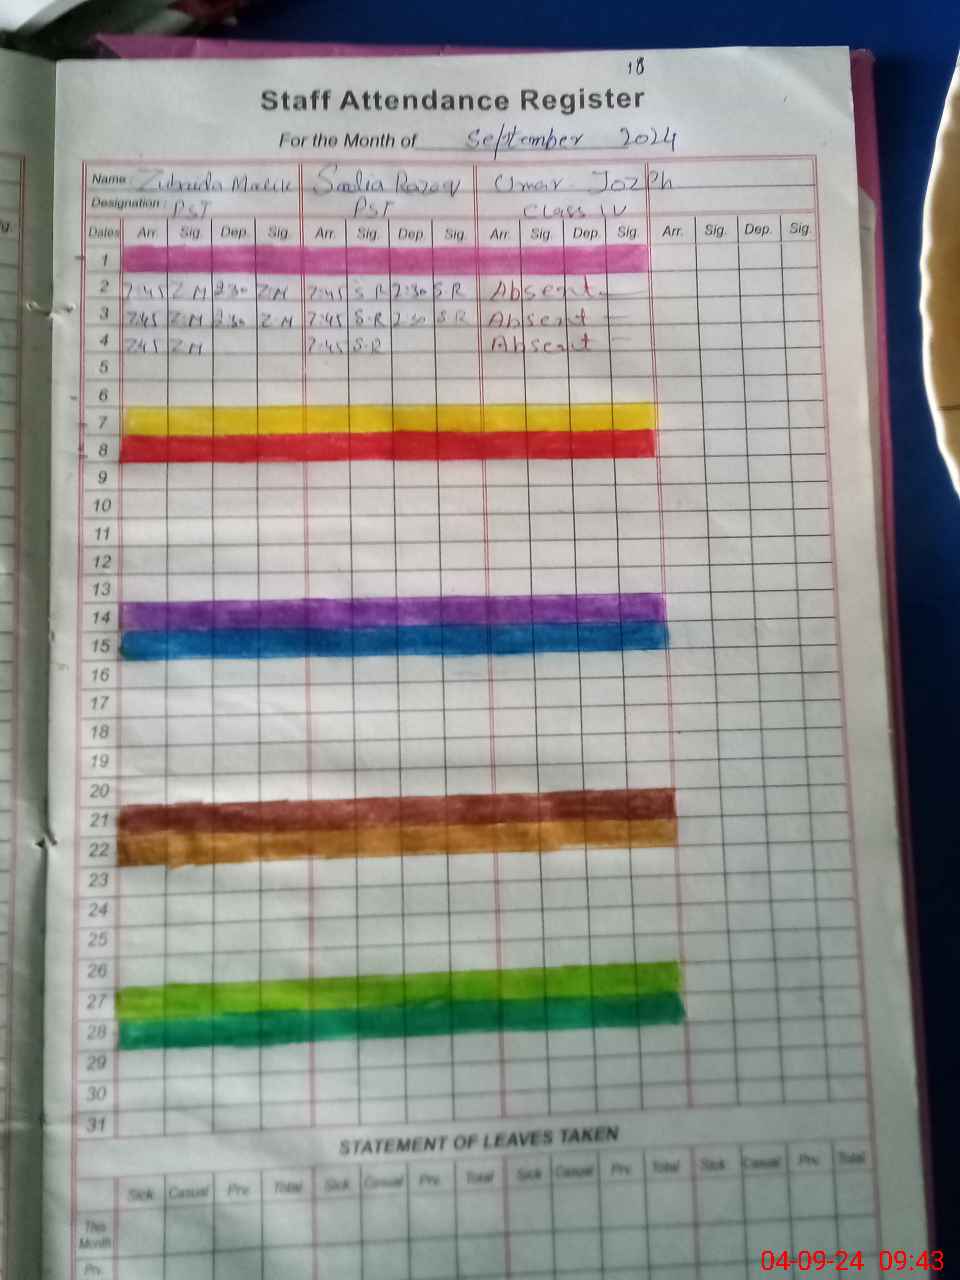 18
Staff Attendance Register
For the Month of September 2024
Name Zubaida Malik Sadia Razaq Umar Jozeph
Designation: PST PST Class IV
Dates Arr. Sig. Dep. Sig. Arr. Sig. Dep. Sig. Arr. Sig. Dep. Sig. Arr. Sig. Dep. Sig.
1
2 7:45 Z.M 2:30 Z.M 7:45 S.R 2:30 S.R Absent
3 7:45 Z.M 2:30 Z.M 7:45 S.R 2:30 S.R Absent
4 7:45 Z.M 7:45 S.R Absent
5
6
7
8
9
10
11
12
13
14
15
16
17
18
19
20
21
22
23
24
25
26
27
28
29
30
31
STATEMENT OF LEAVES TAKEN
Sick Casual Prv. Total Sick Casual Prv. Total Sick Casual Prv. Total Sick Casual Prv. Total
This
Month
Prv.
04-09-24 09:43